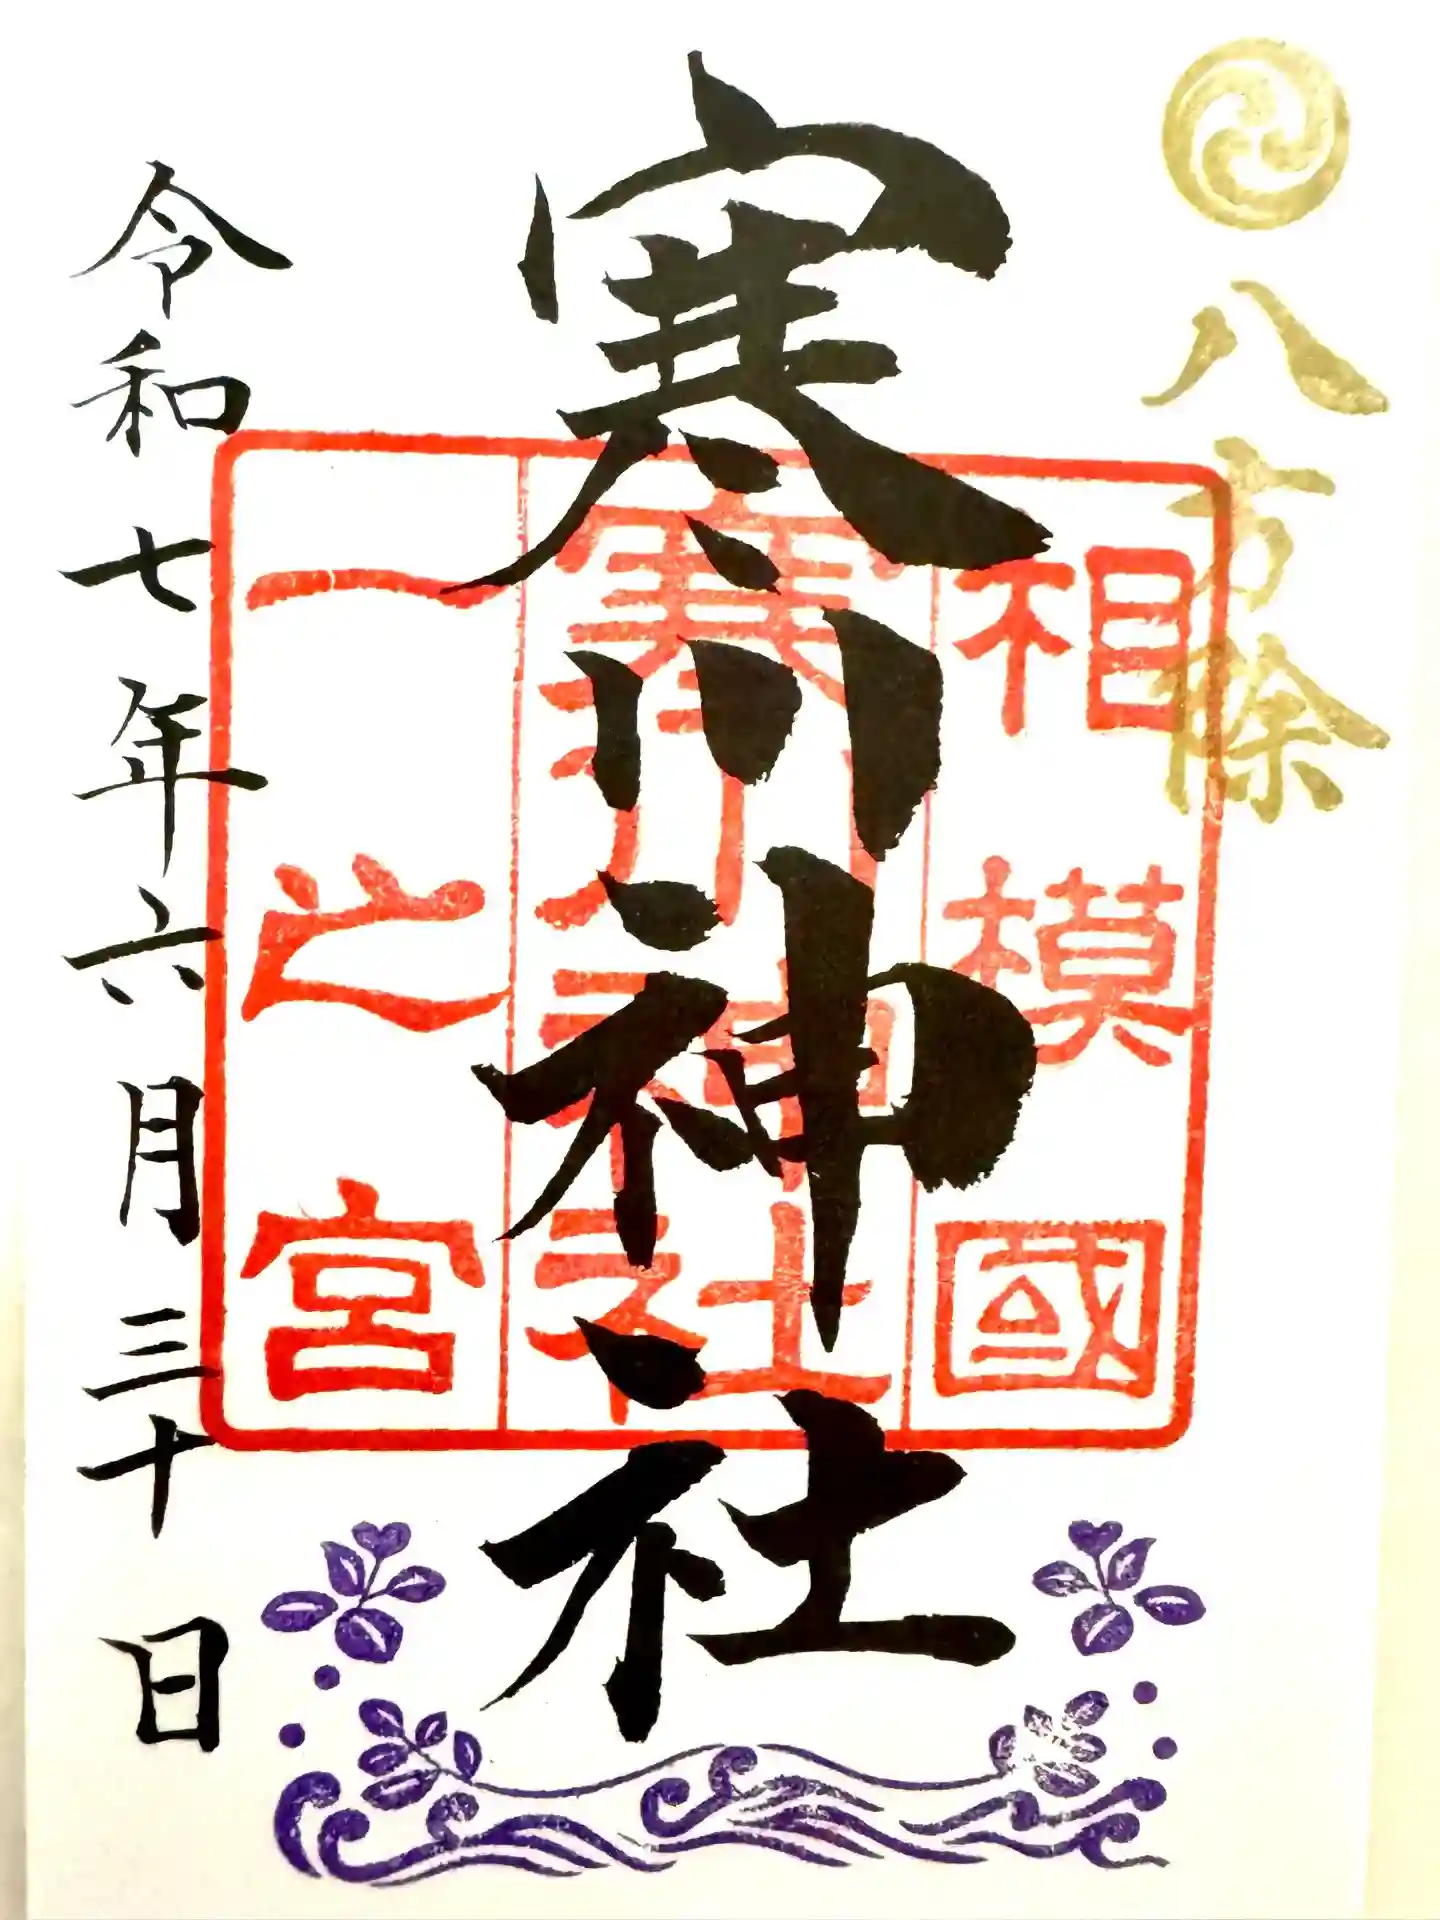 八方除
相模國
寒川神社
一之宮
寒川神社
令和七年六月三十日